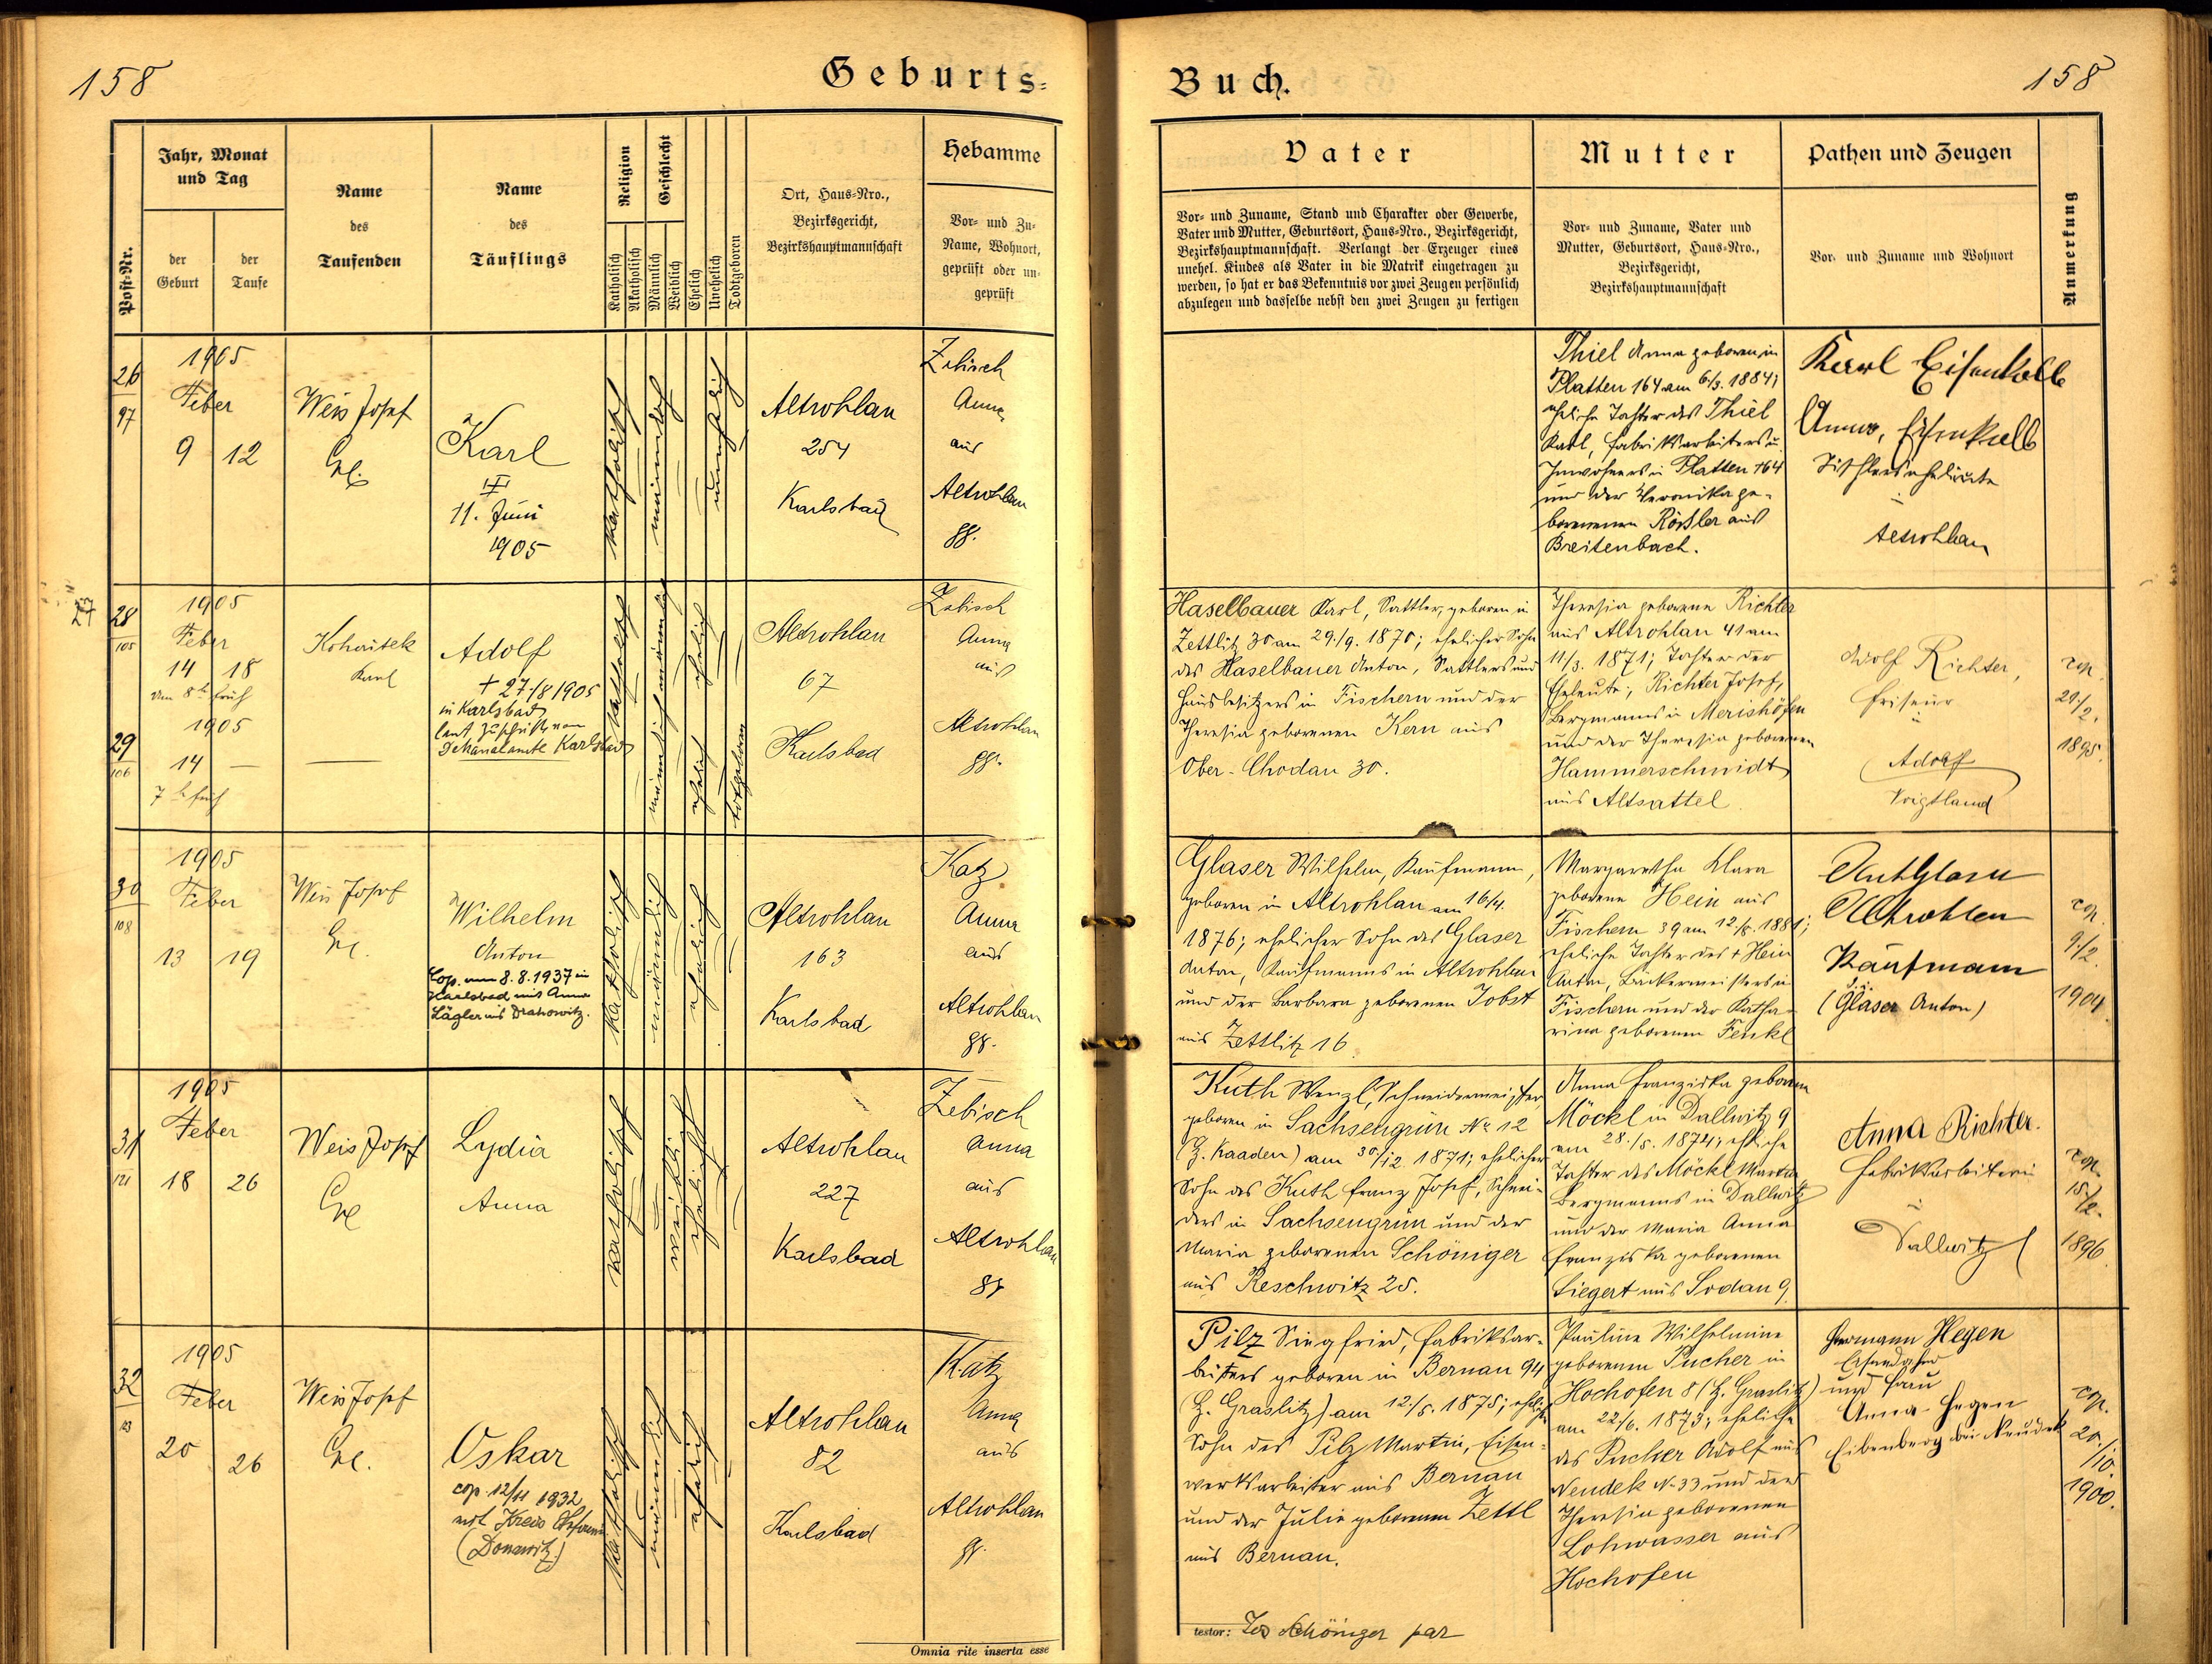 158
Geburts=
Post-Nr.
Jahr, Monat
und Tag
der
Geburt
der
Taufe
Name
des
Taufenden
Name
des
Täuflings
Religion
Katholisch
Akatholisch
Geschlecht
Männlich
Weiblich
Ehelich
Unehelich
Todtgeboren
Ort, Haus-Nro.,
Bezirksgericht,
Bezirkshauptmannschaft
Hebamme
Vor- und Zu-
Name, Wohnort,
geprüft oder un-
geprüft
26
97
1905
Feber
9 12
Weis Josef
Karl
11. Juni
1905
katholisch
männlich
unehelich
Altrohlau
254
Karlsbad
Zebisch
Anna
aus
Altrohlau
gg.
27
28
105
1905
Feber
14 18
um 8h früh
Kohautek
Karl
Adolf
+ 27/8 1905
in Karlsbad
laut Zuschrift von
Dekanalamte Karlsbad
katholisch
männlich
ehelich
Altrohlau
67
Karlsbad
Zebisch
Anna
aus
Altrohlau
gg.
29
106
1905
14 —
7h früh
männlich
ehelich
totgeboren
30
108
1905
Feber
13 19
Weis Josef
Wilhelm
Anton
Cop. am 8.8.1937 in
Karlsbad mit Anna
katholisch
männlich
ehelich
Altrohlau
163
Karlsbad
Katz
Anna
aus
Altrohlau
gg.
31
121
1905
Feber
18 26
Weis Josef
Lydia
Anna
katholisch
weiblich
ehelich
Altrohlau
227
Karlsbad
Zebisch
Anna
aus
Altrohlau
gg
32
1905
Feber
20 26
Weis Josef
Oskar
cop. 12/11 1932
mit Kreis
(Donawitz)
katholisch
männlich
ehelich
Altrohlau
82
Karlsbad
Katz
Anna
aus
Altrohlau
gg.
Omnia rite inserta esse
Buch.
158
Vater
Vor- und Zuname, Stand und Charakter oder Gewerbe,
Vater und Mutter, Geburtsort, Haus-Nro., Bezirksgericht,
Bezirkshauptmannschaft. Verlangt der Erzeuger eines
unehel. Kindes als Vater in die Matrik eingetragen zu
werden, so hat er das Bekenntnis vor zwei Zeugen persönlich
abzulegen und dasselbe nebst den zwei Zeugen zu fertigen
Mutter
Vor- und Zuname, Vater und
Mutter, Geburtsort, Haus-Nro.,
Bezirksgericht,
Bezirkshauptmannschaft
Pathen und Zeugen
Vor- und Zuname und Wohnort
Anmerkung
Thiel Anna geboren in
Platten 164 am 6/3. 1884;
eheliche Tochter des Thiel
Karl, Fabriksarbeiters u.
Inwohners in Platten 164
und der Veronika ge-
borenen Rössler aus
Breitenbach.
Karl Eisenkolb
Anna Eisenkolb
Tischlerseheleute
in
Altrohlau
Haselbauer Karl, Sattler, geboren in
Zettlitz 30 am 29./9. 1870; ehelicher Sohn
des Haselbauer Anton, Sattlers und
Hausbesitzers in Fischern und der
Theresia geborenen Kern aus
Ober-Chodau 30.
Theresia geborene Richter
aus Altrohlau 41 am
11/3. 1871; Tochter der
Eheleute, Richter Josef,
Bergmanns in Merishöfen
und der Theresia geborenen
Hammerschmidt
aus Altsattel.
Adolf Richter,
Friseur
in
Adorf
Voigtland
cop.
1895.
Glaser Wilhelm, Kaufmann,
geboren in Altrohlau am 16/4.
1876; ehelicher Sohn des Glaser
Anton, Kaufmanns in Altrohlau
und der Barbara geborenen Jobst
aus Zettlitz 16.
Margaretha Klara
geborene Hein aus
Fischern 39 am 12./8. 1881;
eheliche Tochter des + Hein
Anton, Bäckermeisters in
Fischern und der Katha-
rina geborenen Fenkl
Ant Glaser
Altrohlau
Kaufmann
(Gläser Anton)
cop.
9./2.
1904.
Kuth Wenzl, Schneidermeister,
geboren in Sachsengrün No 12
(B. Kaaden) am 30./12. 1871; ehelicher
Sohn des Kuth Franz Josef, Schnei-
ders in Sachsengrün und der
Maria geborenen Schöniger
aus Reschwitz 25.
Anna Franziska geborene
Möckl in Dallwitz 9
am 28./5. 1874; eheliche
Tochter des Möckl Martin
Bergmanns in Dallwitz
und der Maria Anna
Franziska geborenen
Siegert aus Sodau 9.
Anna Richter.
Fabriksarbeiterin
in
Dallwitz
cop.
1896.
Pilz Siegfried, Fabriksar-
beiters geboren in Bernau 94
(B. Graslitz) am 12./5. 1875; ehelicher
Sohn des Pilz Martin, Eisen-
werksarbeiter aus Bernau
und der Julie geborenen Zettl
aus Bernau.
Pauline Wilhelmine
geborenen Pucher in
Hochofen 8 (B. Graslitz)
am 22/6. 1873; eheliche
des Pucher Adolf aus
Neudek N. 33 und der
Theresia geborenen
Lohwasser aus
Hochofen
Hermann Hegen
und Frau
Anna Hegen
Eibenberg bei Neudek
cop.
20./10.
1900.
testor: Jos Schöniger par